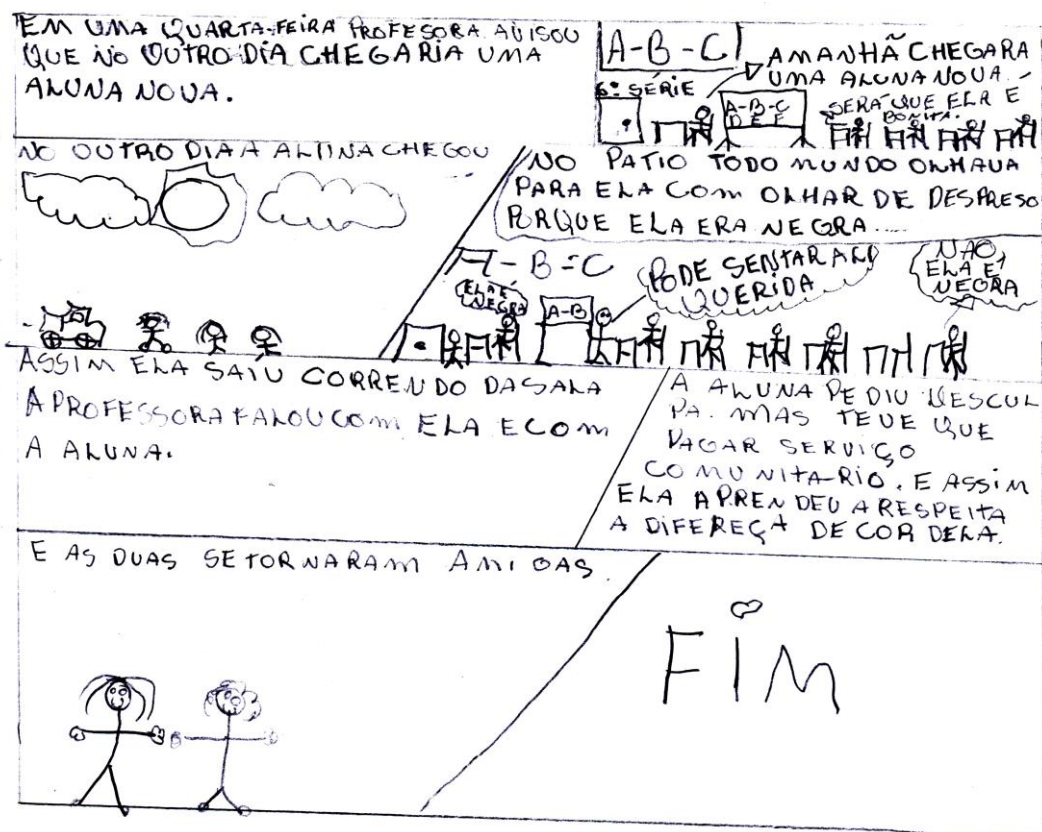 EM UMA QUARTA-FEIRA PROFESORA AVISOU
QUE NO OUTRO DIA CHEGARIA UMA
ALUNA NOVA.
A-B-C
6ª SÉRIE
AMANHÃ CHEGARA
UMA ALUNA NOVA.
A-B-C
D E F
SERÁ QUE ELA É
BONITA.
NO OUTRO DIA A ALUNA CHEGOU
NO PATIO TODO MUNDO OLHAVA
PARA ELA COM OLHAR DE DESPRESO
PORQUE ELA ERA NEGRA....
A-B-C
ELA É
NEGRA
A-B
PODE SENTAR ALI
QUERIDA
NÃO,
ELA É
NEGRA
ASSIM ELA SAIU CORRENDO DA SALA
A PROFESSORA FALOU COM ELA E COM
A ALUNA.
A ALUNA PEDIU DESCUL
PA. MAS TEVE QUE
PAGAR SERVIÇO
COMUNITA-RIO. E ASSIM
ELA APRENDEU A RESPEITA
A DIFEREÇA DE COR DELA.
E AS DUAS SE TORNARAM AMIGAS
FIM